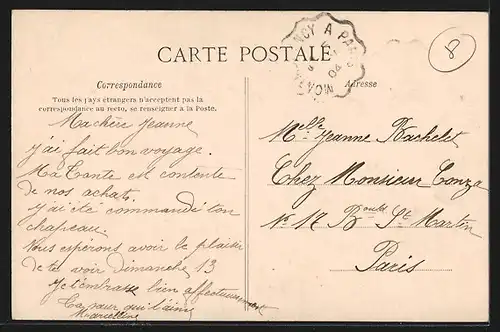 CARTE POSTALE
NCY A PAR
04
8
Correspondance
Adresse
Tous les pays étrangers n'acceptent pas la
correspondance au recto, se renseigner à la Poste.
Ma chère Jeanne
j'ai fait bon voyage.
Ma Tante est contente
de nos achats.
j'ai été commandé ton
chapeau.
Nous espérons avoir le plaisir
de te voir dimanche 13
Je t'embrasse bien affectueusement
Ta sœur qui t'aime
Marcelline
Melle Jeanne Bachelet
Chez Monsieur Conza
No 17 Bould St Martin
Paris